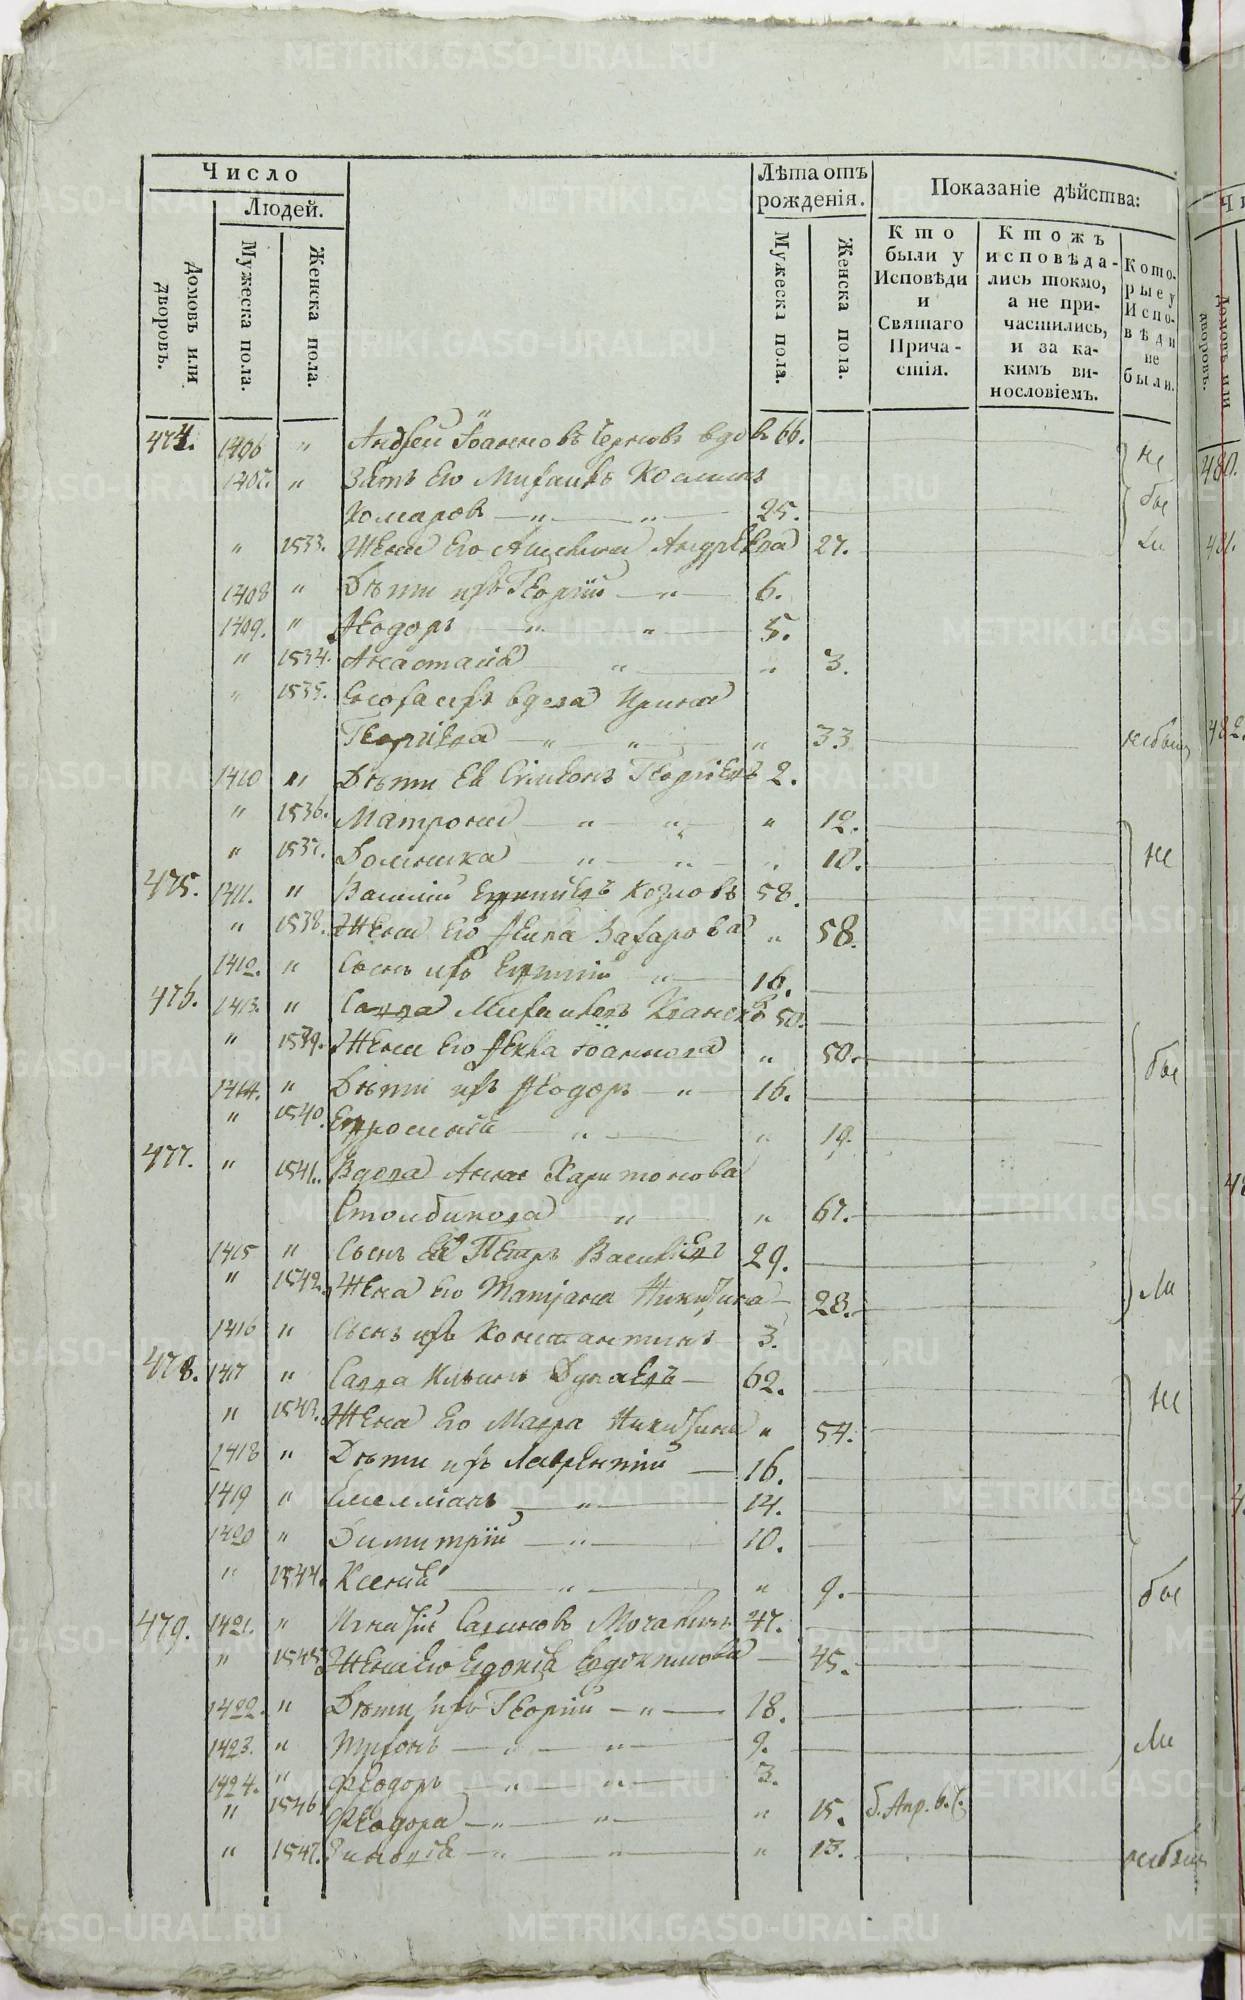 Число
Людей.
Домовъ или дворовъ.
Мужеска пола.
Женска пола.
Лѣта отъ рожденія.
Мужеска пола.
Женска пола.
Показаніе дѣйства:
Кто были у Исповѣди и Святаго Причастія.
Ктожъ исповѣдались токмо, а не причастились, и за какимъ винословіемъ.
Которые у Исповѣди не были.
474. 1406 " Андрей Іоанновъ вдов 66. не
1407. " Зять Его Михаилъ
Комаровъ — " — " — 25. бы
" 1533. Жена Его Андрѣева 27. ли
1408 " Дѣти ихъ Георгій — " — 6.
1409. " Ѳеодоръ — " — " — 5.
" 1534. Анастасія — " — " 3.
" 1535. вдова Ирина
Георгіева — " — " — " 33 небыли
1410 " Дѣти Ея Симеонъ Георгіевъ 2.
" 1536. Матрона — " — " — " 12.
" 1537. Домника — " — " — " 10. не
475. 1411. " Василій Козловъ 58.
" 1538. Жена Его Ѳекла Захарова " 58.
1412. " Сынъ ихъ — " — 16.
476. 1413. " Савва Михаиловъ 50.
" 1539. Жена Его Ѳекла Іоаннова " 50. бы
1414. " Дѣти ихъ Ѳеодоръ — " — 16.
" 1540. — " — " 19.
477. " 1541. Вдова Анна Харитонова
Столбикова — " — " 67.
1415 " Сынъ Ея Петръ Васильевъ 29.
" 1542. Жена Его Татіана Никитина — 28. ли
1416 " Сынъ ихъ Константинъ 3.
478. 1417 " Савва Ильинъ — 62.
" 1543. Жена Его Мавра Никитина " 54. не
1418 " Дѣти ихъ Лаврентій — 16.
1419 " Емелліанъ — " — 14.
1420 " Димитрій — " — 10.
" 1544. Ксенія — " — " 9. бы
479. 1421. " Игнатій 47.
" 1545. Жена Его Евдокія Евдокимова — 45.
1422. " Дѣти ихъ Георгій — " — 18.
1423. " Трифонъ — " — " — 9. ли
1424. " Феодоръ — " — " — 3.
" 1546 Феодора — " — " — " 15. б. Апр. 6.
" 1547. — " — " — " 13. небыли
480.
481.
482.
METRIKI.GASO-URAL.RU